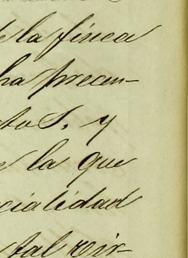 de la finca
ha precin-
to S. y
e la que
cialidad
tal vir-